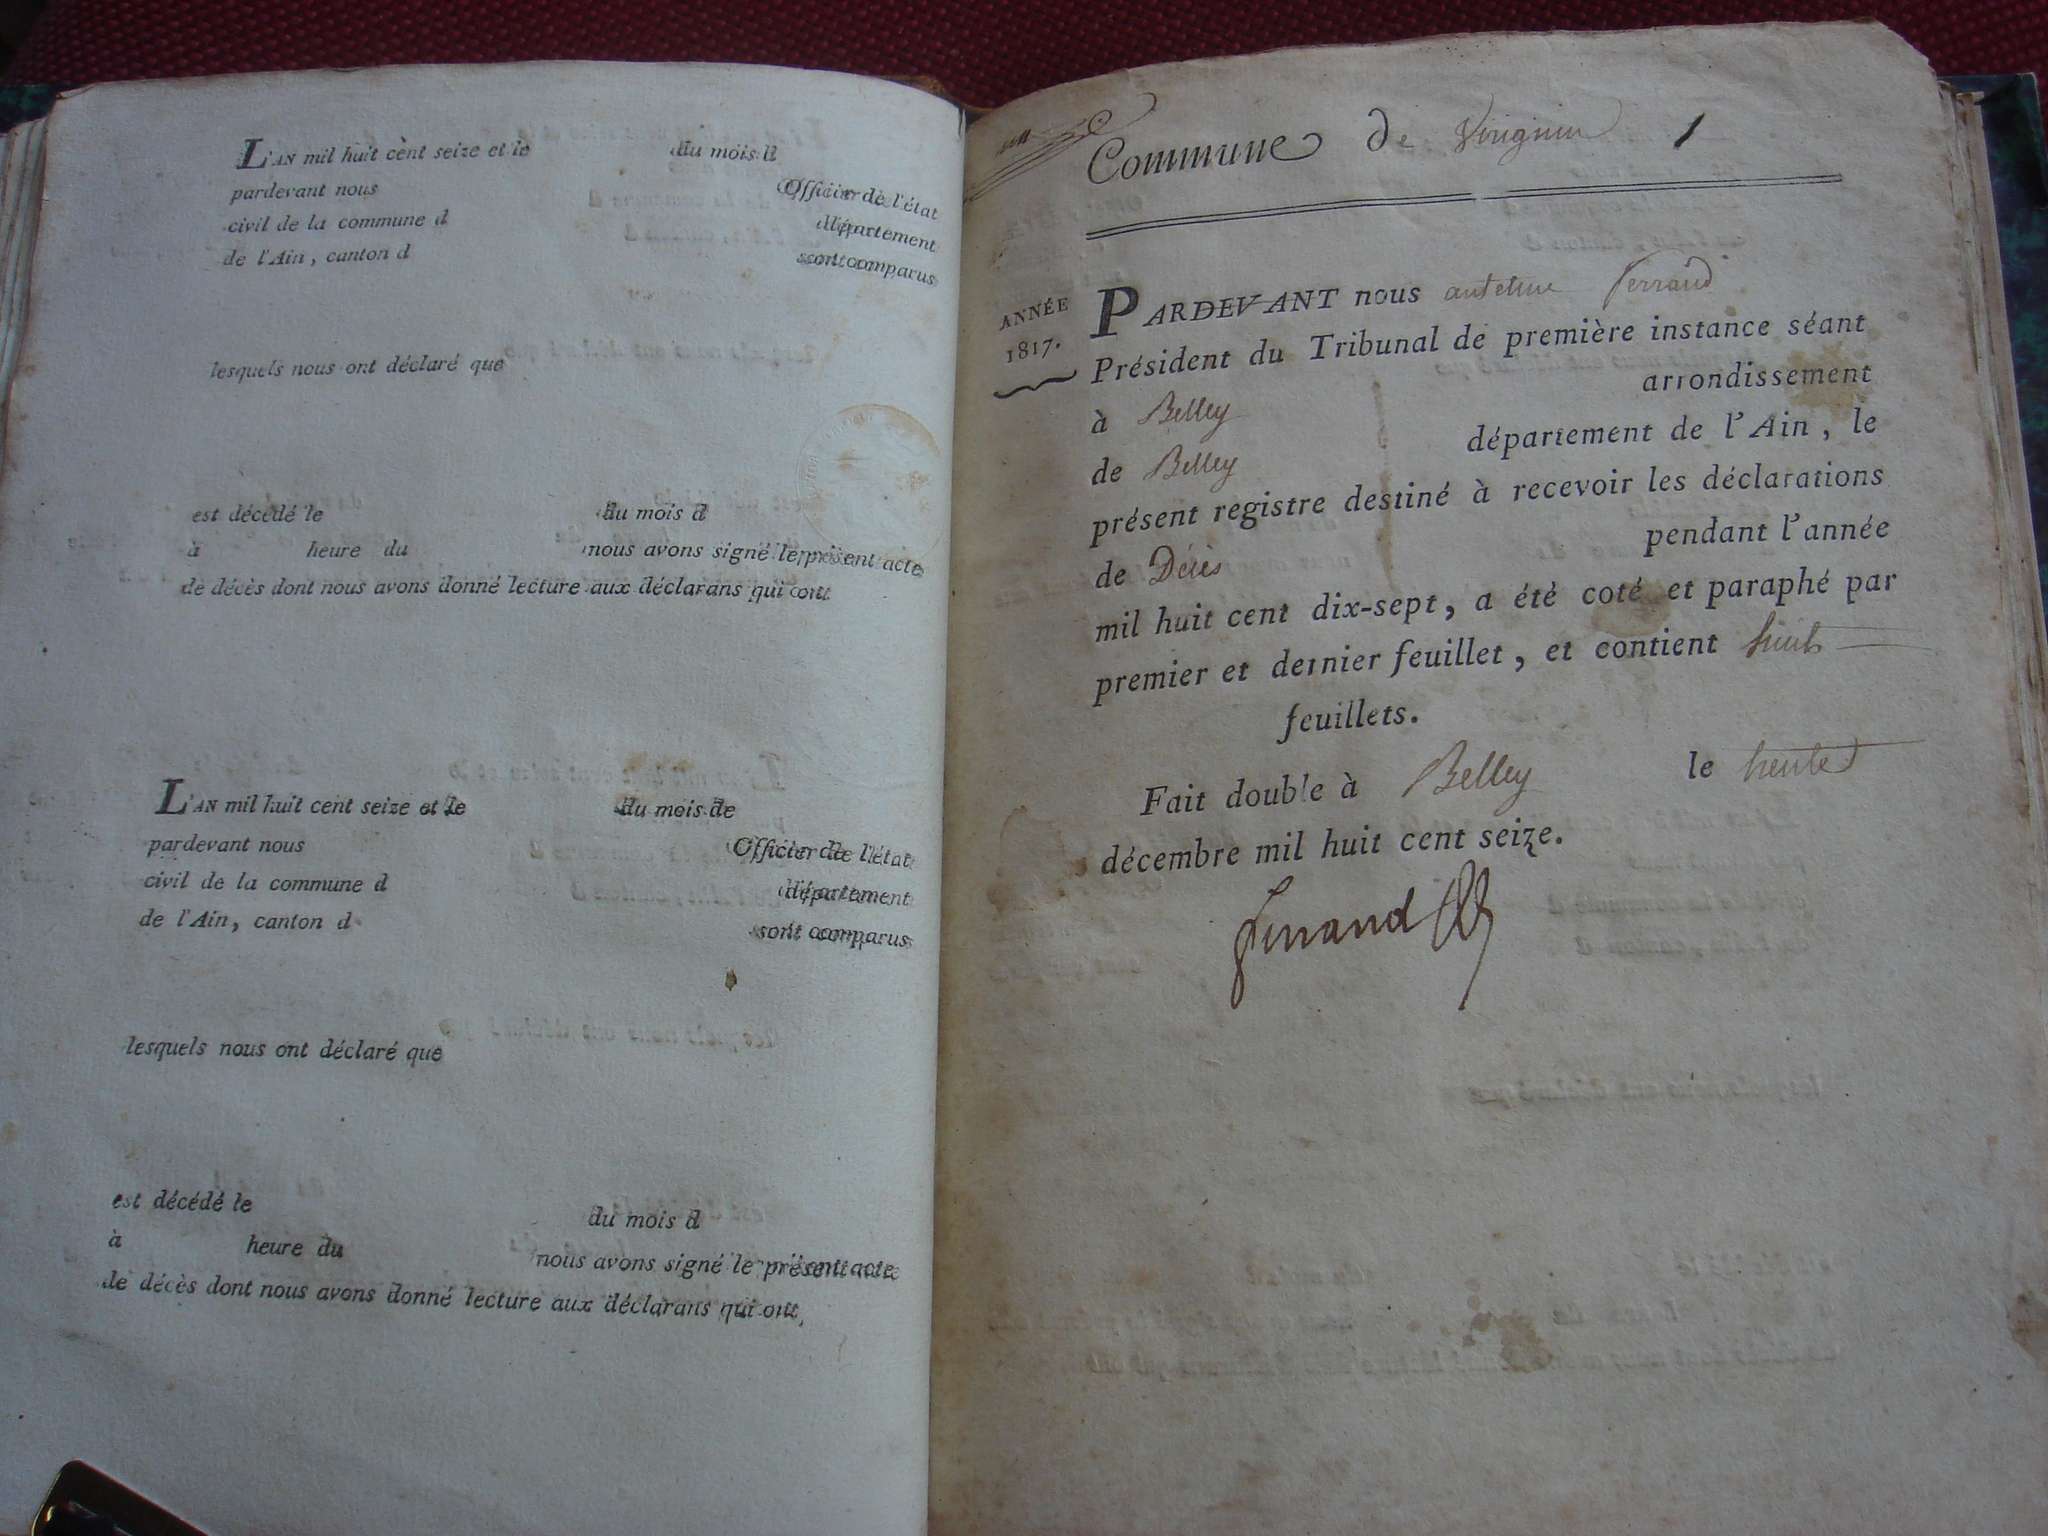 L'AN mil huit cent seize et le du mois d
pardevant nous Officier de l'état
civil de la commune d département
de l'Ain, canton d sont comparus
lesquels nous ont déclaré que
est décédé le du mois d
à heure du nous avons signé le présent acte
de décès dont nous avons donné lecture aux déclarans qui ont
L'AN mil huit cent seize et le du mois de
pardevant nous Officier de l'état
civil de la commune d département
de l'Ain, canton d sont comparus
lesquels nous ont déclaré que
est décédé le du mois d
à heure du nous avons signé le présent acte
de décès dont nous avons donné lecture aux déclarans qui ont
Commune de Virignin 1
ANNÉE
1817.
PARDEVANT nous antelme ferrand
Président du Tribunal de première instance séant
à Belley arrondissement
de Belley département de l'Ain, le
présent registre destiné à recevoir les déclarations
de Décès pendant l'année
mil huit cent dix-sept, a été coté et paraphé par
premier et dernier feuillet, et contient huit
feuillets.
Fait double à Belley le trente
décembre mil huit cent seize.
ferrand